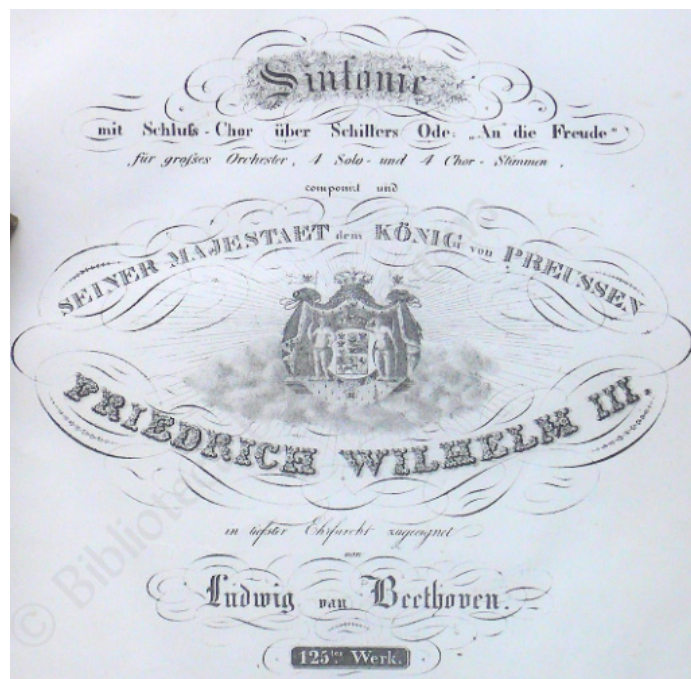 Sinfonie
mit Schluß-Chor über Schillers Ode: „An die Freude“
für großes Orchester, 4 Solo- und 4 Chor-Stimmen,
componirt und
SEINER MAJESTAET dem KÖNIG von PREUSSEN
FRIEDRICH WILHELM III.
in tiefster Ehrfurcht zugeeignet
von
Ludwig van Beethoven.
125tes Werk.